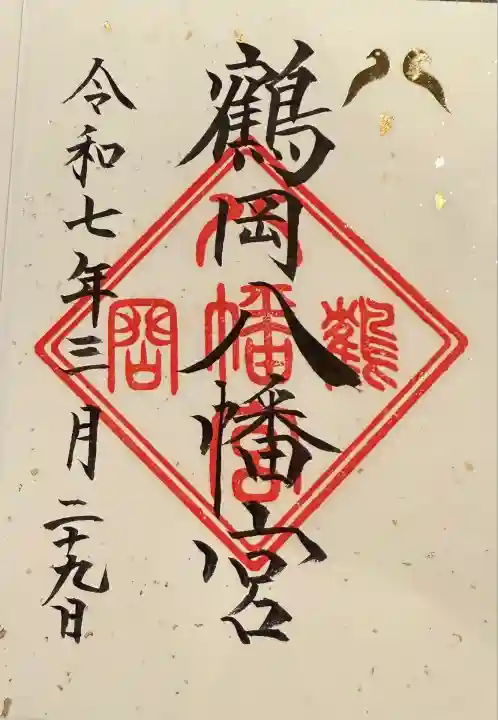 鶴岡八幡宮
令和七年三月二十九日
鶴岡
八幡宮